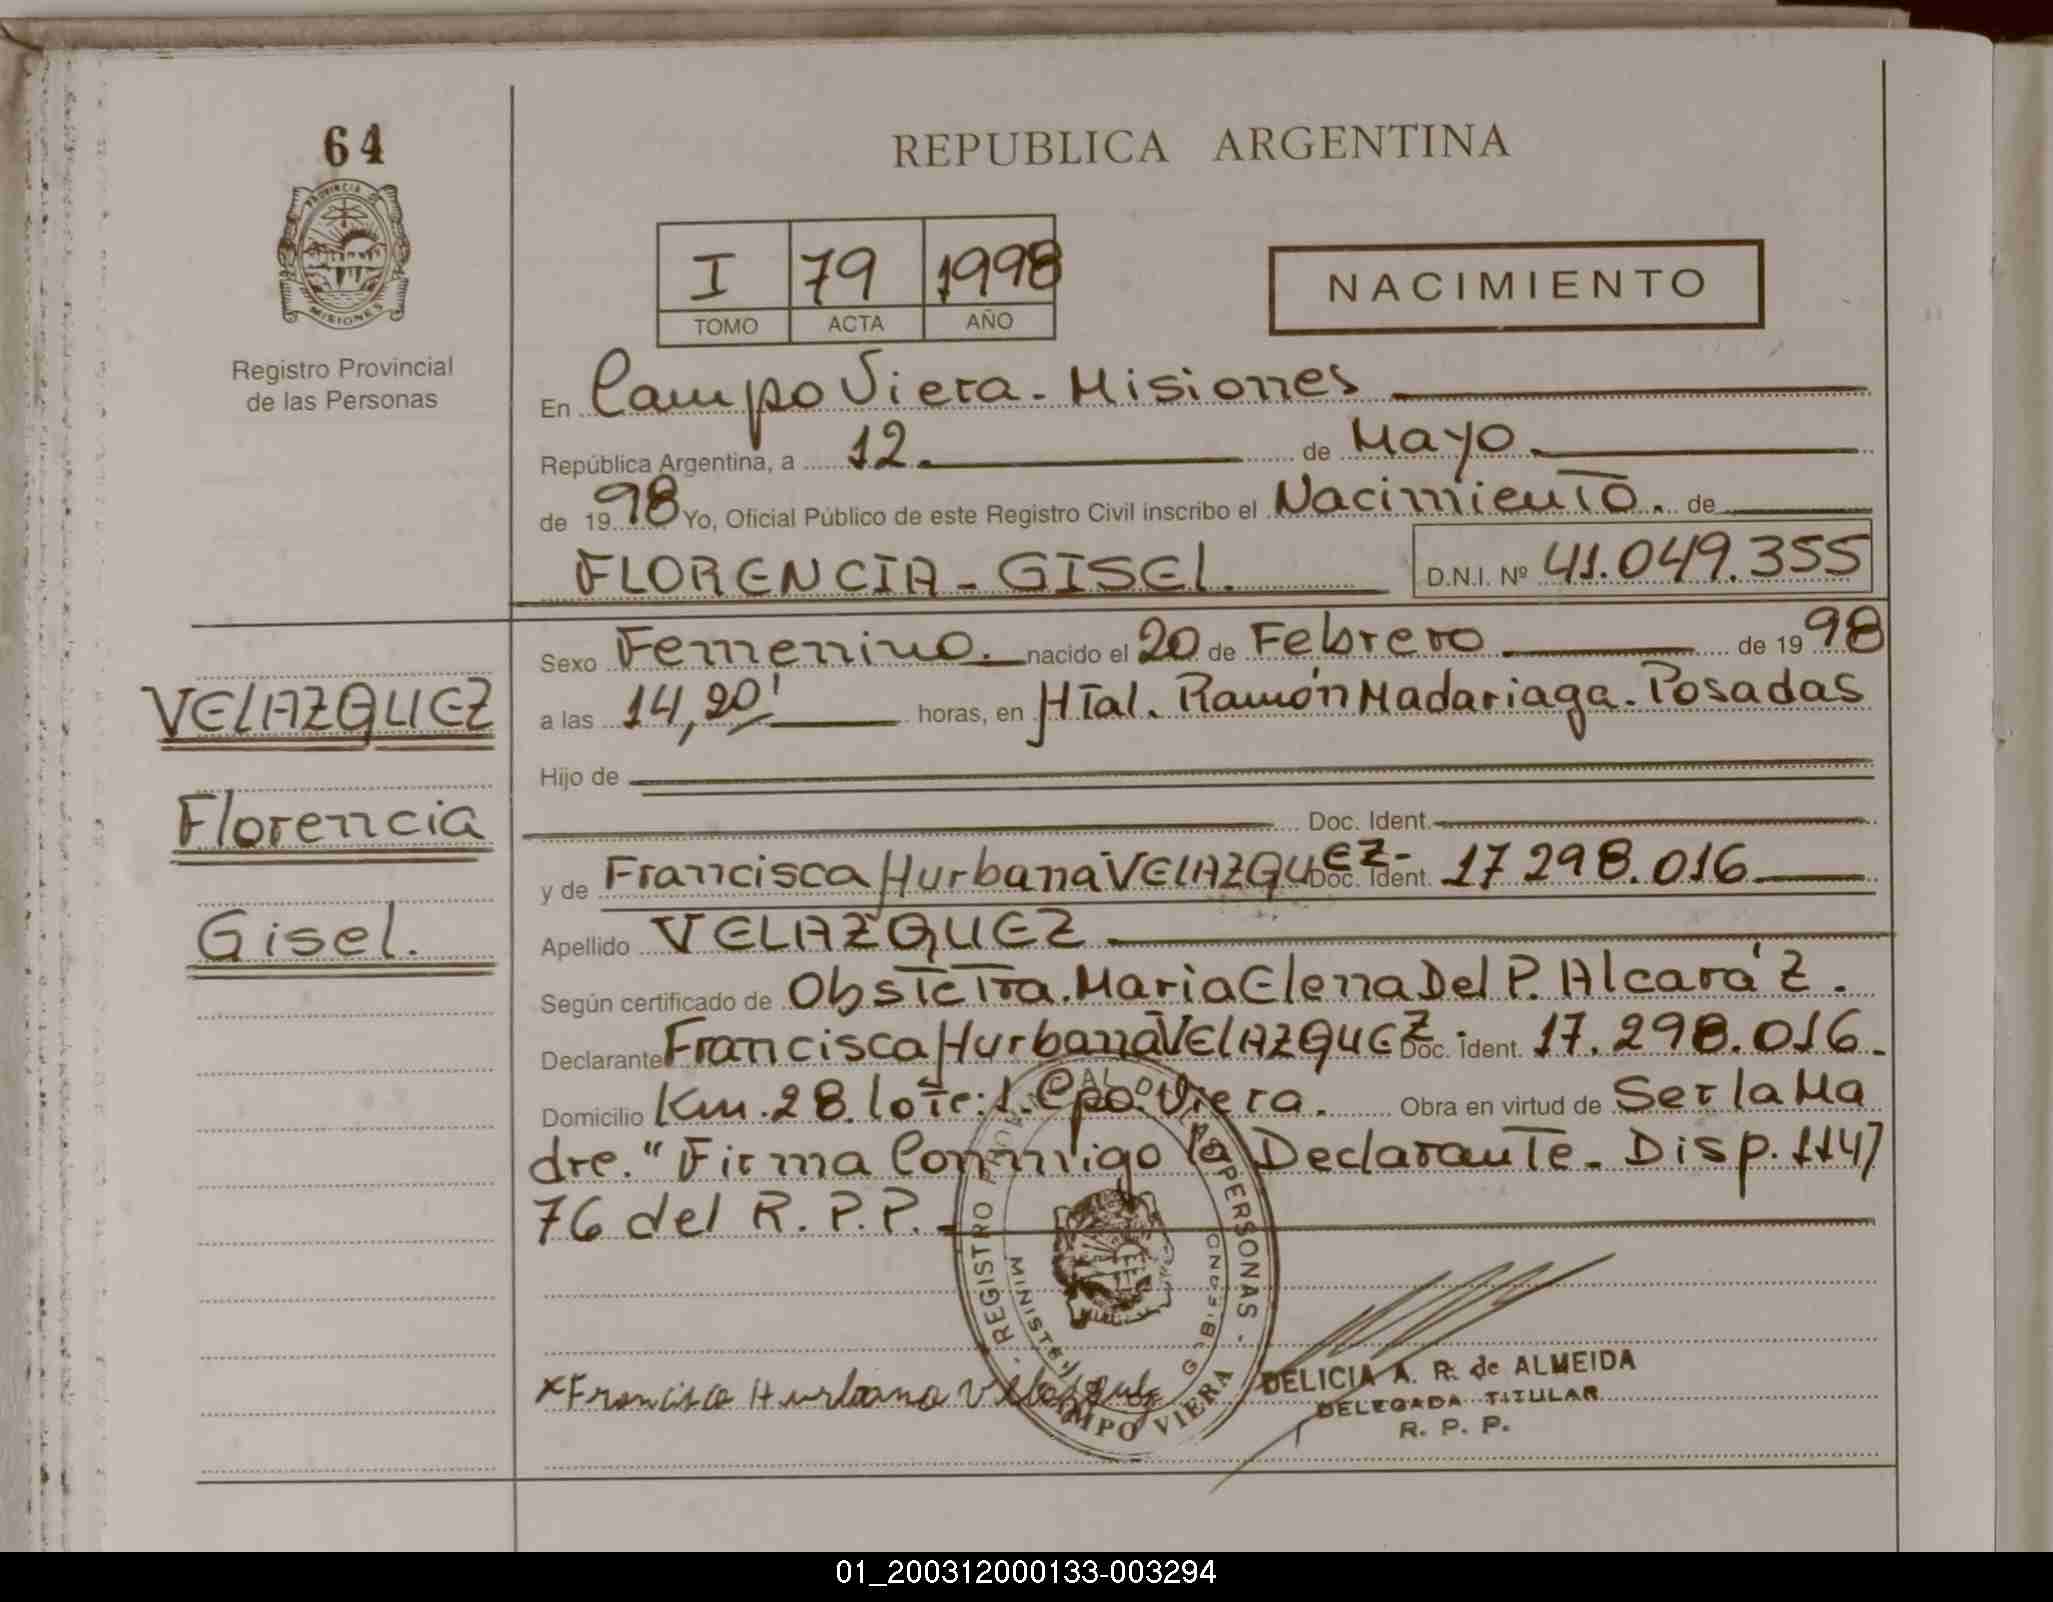 64
PROVINCIA DE
MISIONES
Registro Provincial
de las Personas
REPUBLICA ARGENTINA
I 79 1998
TOMO ACTA AÑO
NACIMIENTO
En Campo Viera - Misiones
República Argentina, a 12 de Mayo
de 1998 Yo, Oficial Público de este Registro Civil inscribo el Nacimiento. de
FLORENCIA - GISEL. D.N.I. Nº 41.049.355
Sexo Femenino. nacido el 20 de Febrero de 1998
a las 14,20' horas, en Htal. Ramón Madariaga. Posadas
Hijo de
Doc. Ident.
y de Francisca Hurbana VELAZQUEZ- Doc. Ident. 17 298.016
Apellido VELAZQUEZ
Según certificado de Obstetra. Maria Elena Del P. Alcaráz.
Declarante Francisca Hurbana VELAZQUEZ Doc. Ident. 17.298.016.
Domicilio Km. 28. lote: 1. Cpo. Viera. Obra en virtud de Ser la Ma
dre." Firma Conmigo la Declarante. Disp. 1147
76 del R.P.P.
VELAZQUEZ
Florencia
Gisel.
REGISTRO PERSONAS
CAMPO VIERA
x Francisca Hurbana
DELICIA A. R. de ALMEIDA
DELEGADA TITULAR
R. P. P.
01_200312000133-003294